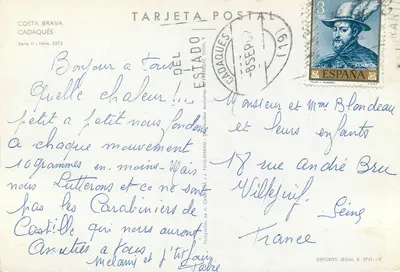 COSTA BRAVA
CADAQUÉS
Serie II - Núm. 5273
TARJETA POSTAL
DEL
ESTADO
CADAQUÉS
SEP
(16)
3
PTAS
CORREOS
ESPAÑA
Bonjour a tous
Quelle chaleur!...
petit a petit nous fondons
A chaque mouvement
10 grammes en moins. Mais
nous lutterons et ce ne sont
pas les Carabiniers de
Castille qui nous auront
Amitiés a tous
Melanis et p'tit
Monsieur et Mme Blondeau
et leurs enfants
18 rue André Bru
Villejuif
Seine
France
DEPÓSITO LEGAL B. 3741